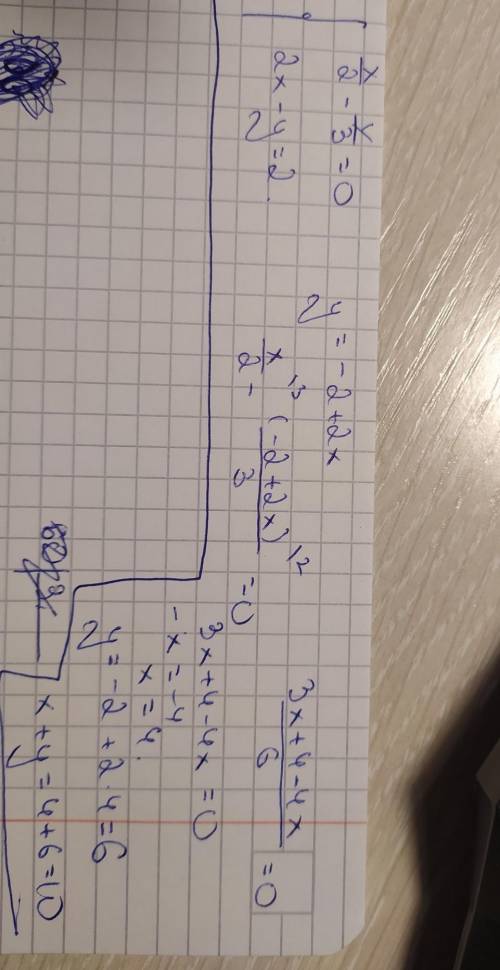 x/2 - y/3 = 0
2x - y = 2.
y = -2 + 2x
x/2 \3 - (-2 + 2x)/3 \2 = 0
(3x + 4 - 4x)/6 = 0
3x + 4 - 4x = 0
-x = -4
x = 4.
y = -2 + 2·4 = 6
x + y = 4 + 6 = 10